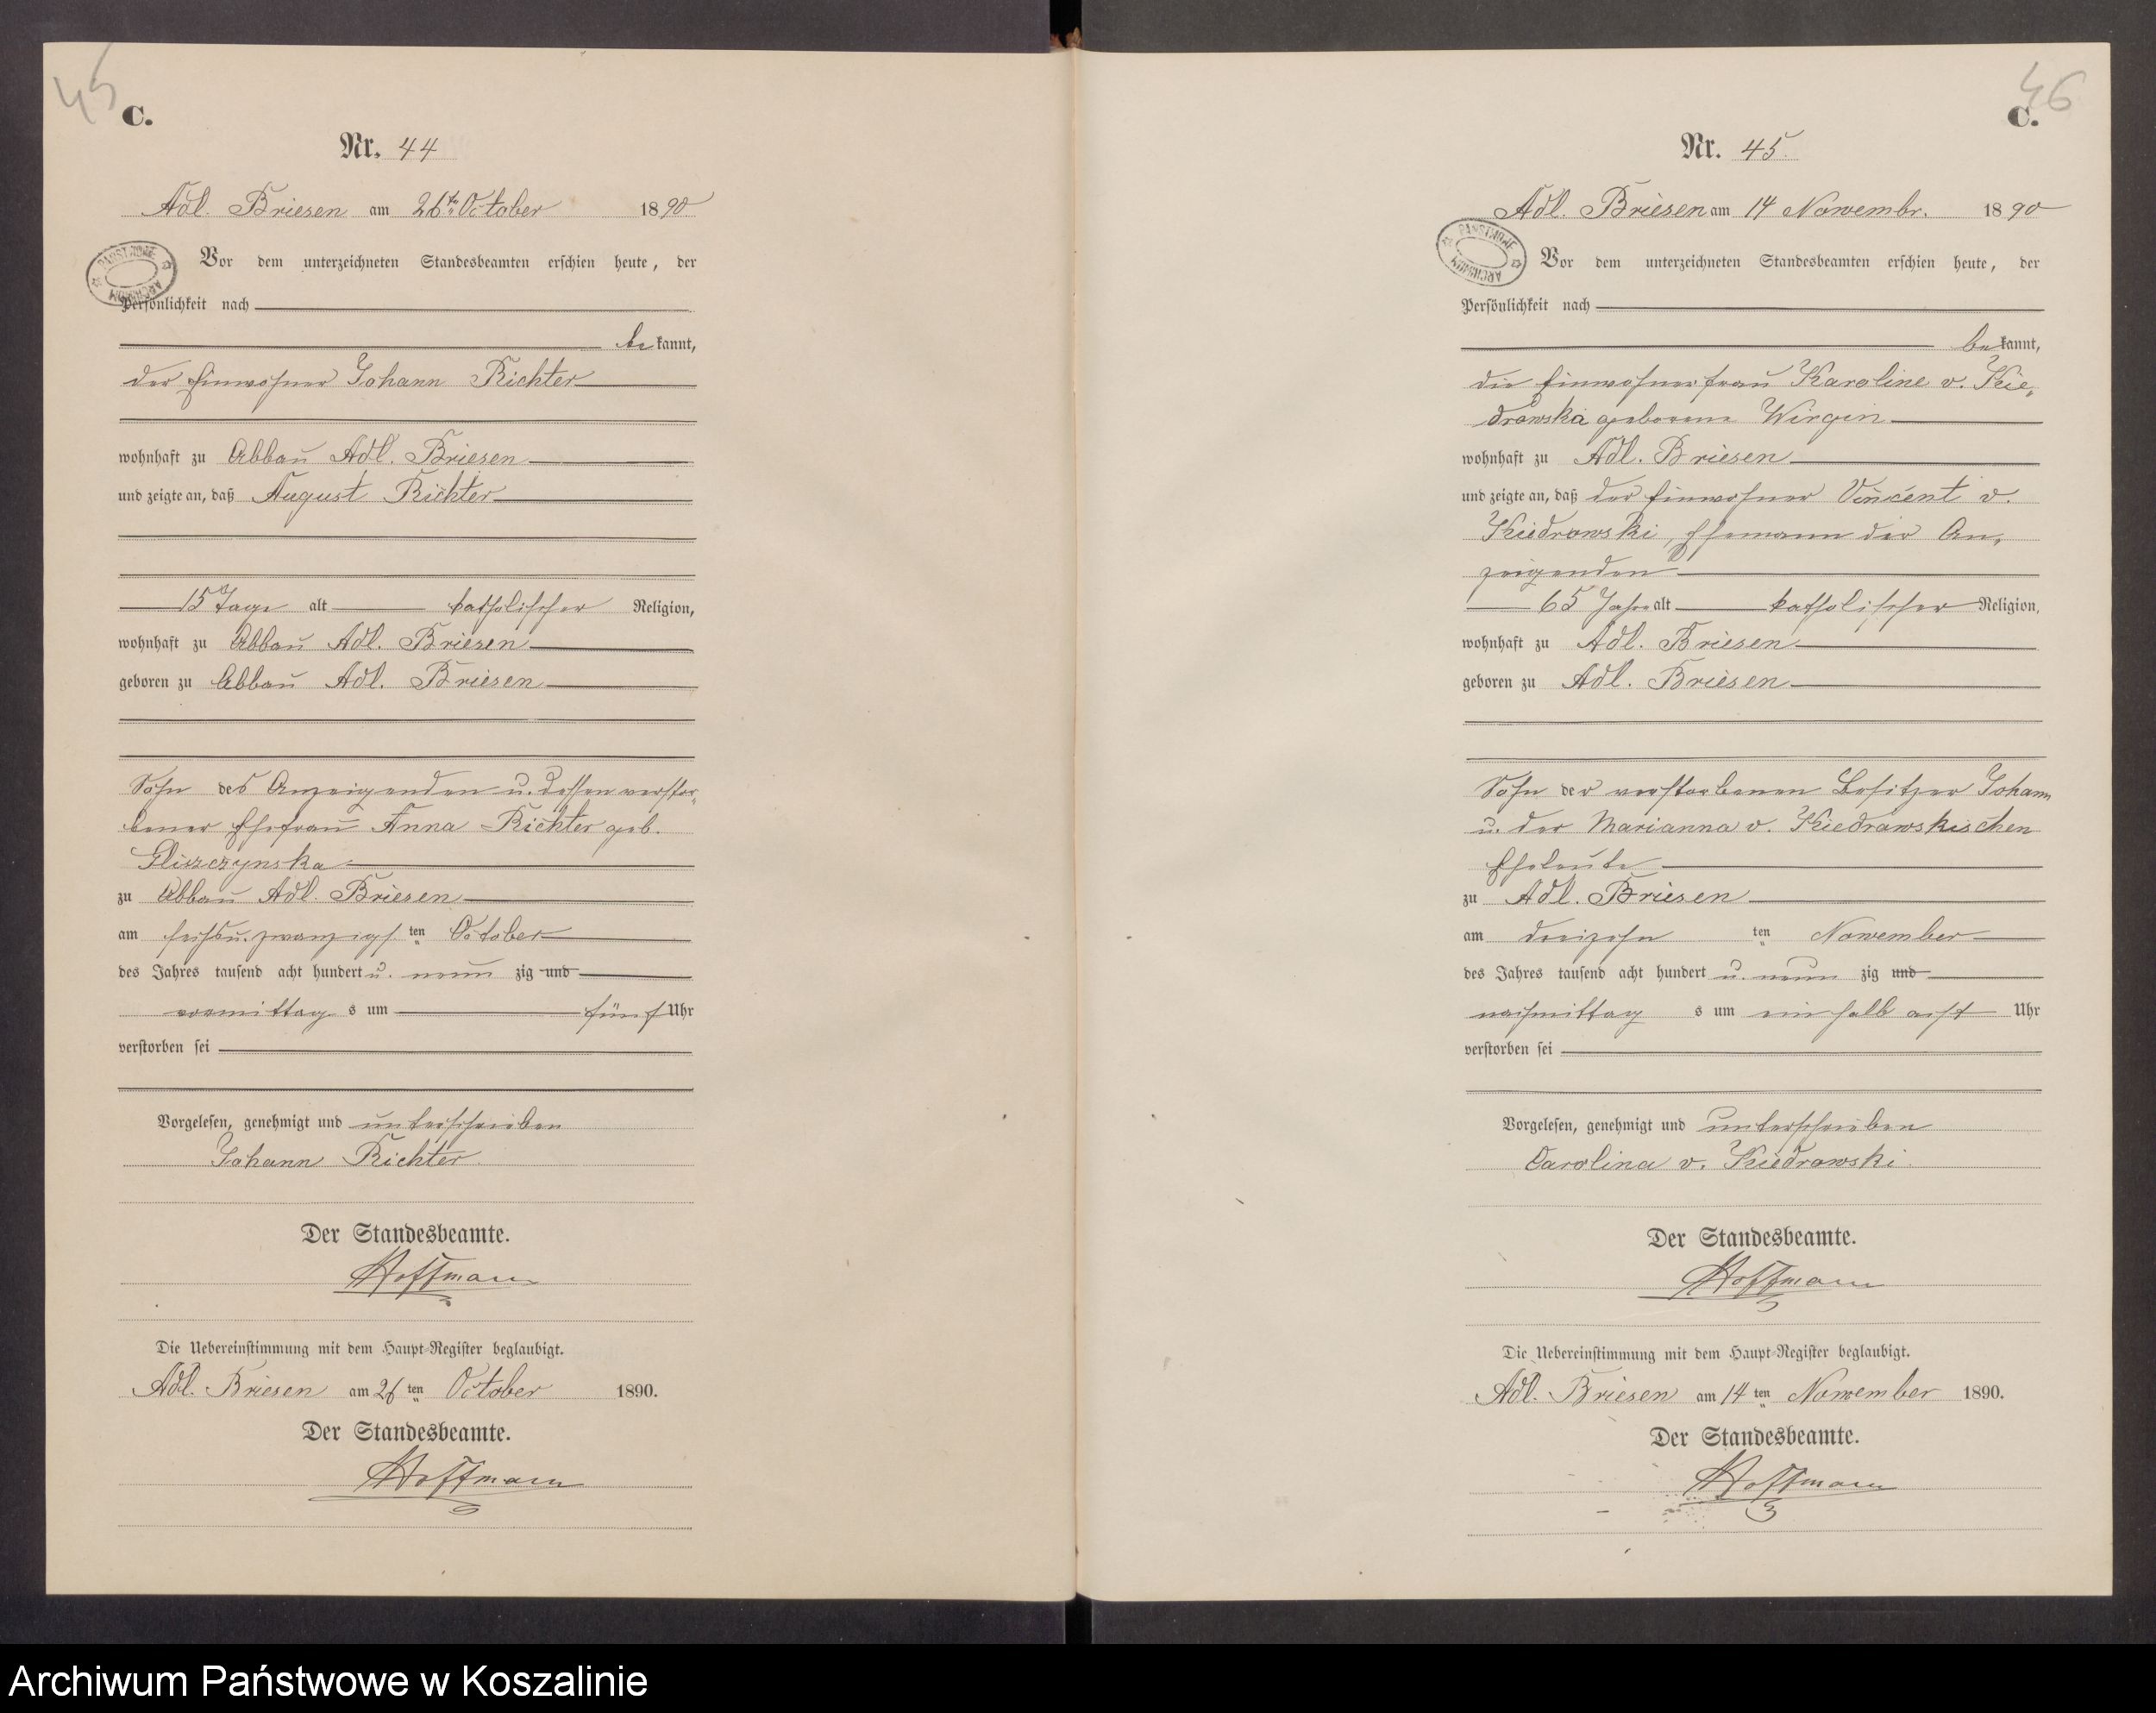 45
C.
Nr. 44
Adl. Briesen am 26ten October 1890
PAŃSTWOWE ARCHIWUM
Vor dem unterzeichneten Standesbeamten erschien heute, der
Persönlichkeit nach
bekannt,
der Einwohner Johann Richter
wohnhaft zu Abbau Adl. Briesen
und zeigte an, daß August Richter
15 Tage alt katholischer Religion,
wohnhaft zu Abbau Adl. Briesen
geboren zu Abbau Adl. Briesen
Sohn des Anzeigenden u. dessen verstor-
bener Ehefrau Anna Richter geb.
Gliszczynska
zu Abbau Adl. Briesen
am sechsu. zwanzigsten October
des Jahres tausend acht hundert u. neun zig und
vormittags um fünf Uhr
verstorben sei
Vorgelesen, genehmigt und unterschrieben
Johann Richter
Der Standesbeamte.
Hoffmann
Die Uebereinstimmung mit dem Haupt-Register beglaubigt.
Adl. Briesen am 26ten October 1890.
Der Standesbeamte.
Hoffmann
46
C.
Nr. 45.
Adl. Briesen am 14 November. 1890
PAŃSTWOWE ARCHIWUM
Vor dem unterzeichneten Standesbeamten erschien heute, der
Persönlichkeit nach
bekannt,
die Einwohnerfrau Karoline v. Kie-
drowska geborene Wirgin
wohnhaft zu Adl. Briesen
und zeigte an, daß der Einwohner Vincent v.
Kiedrowski, Ehemann der An-
zeigenden
65 Jahre alt katholischer Religion,
wohnhaft zu Adl. Briesen
geboren zu Adl. Briesen
Sohn der verstorbenen Besitzer Johann
u. der Marianna v. Kiedrowskischen
Eheleute
zu Adl. Briesen
am dreizehnten November
des Jahres tausend acht hundert u. neun zig und
nachmittags um ein halb acht Uhr
verstorben sei
Vorgelesen, genehmigt und unterschrieben
Carolina v. Kiedrowski
Der Standesbeamte.
Hoffmann
Die Uebereinstimmung mit dem Haupt-Register beglaubigt.
Adl. Briesen am 14ten November 1890.
Der Standesbeamte.
Hoffmann
Archiwum Państwowe w Koszalinie